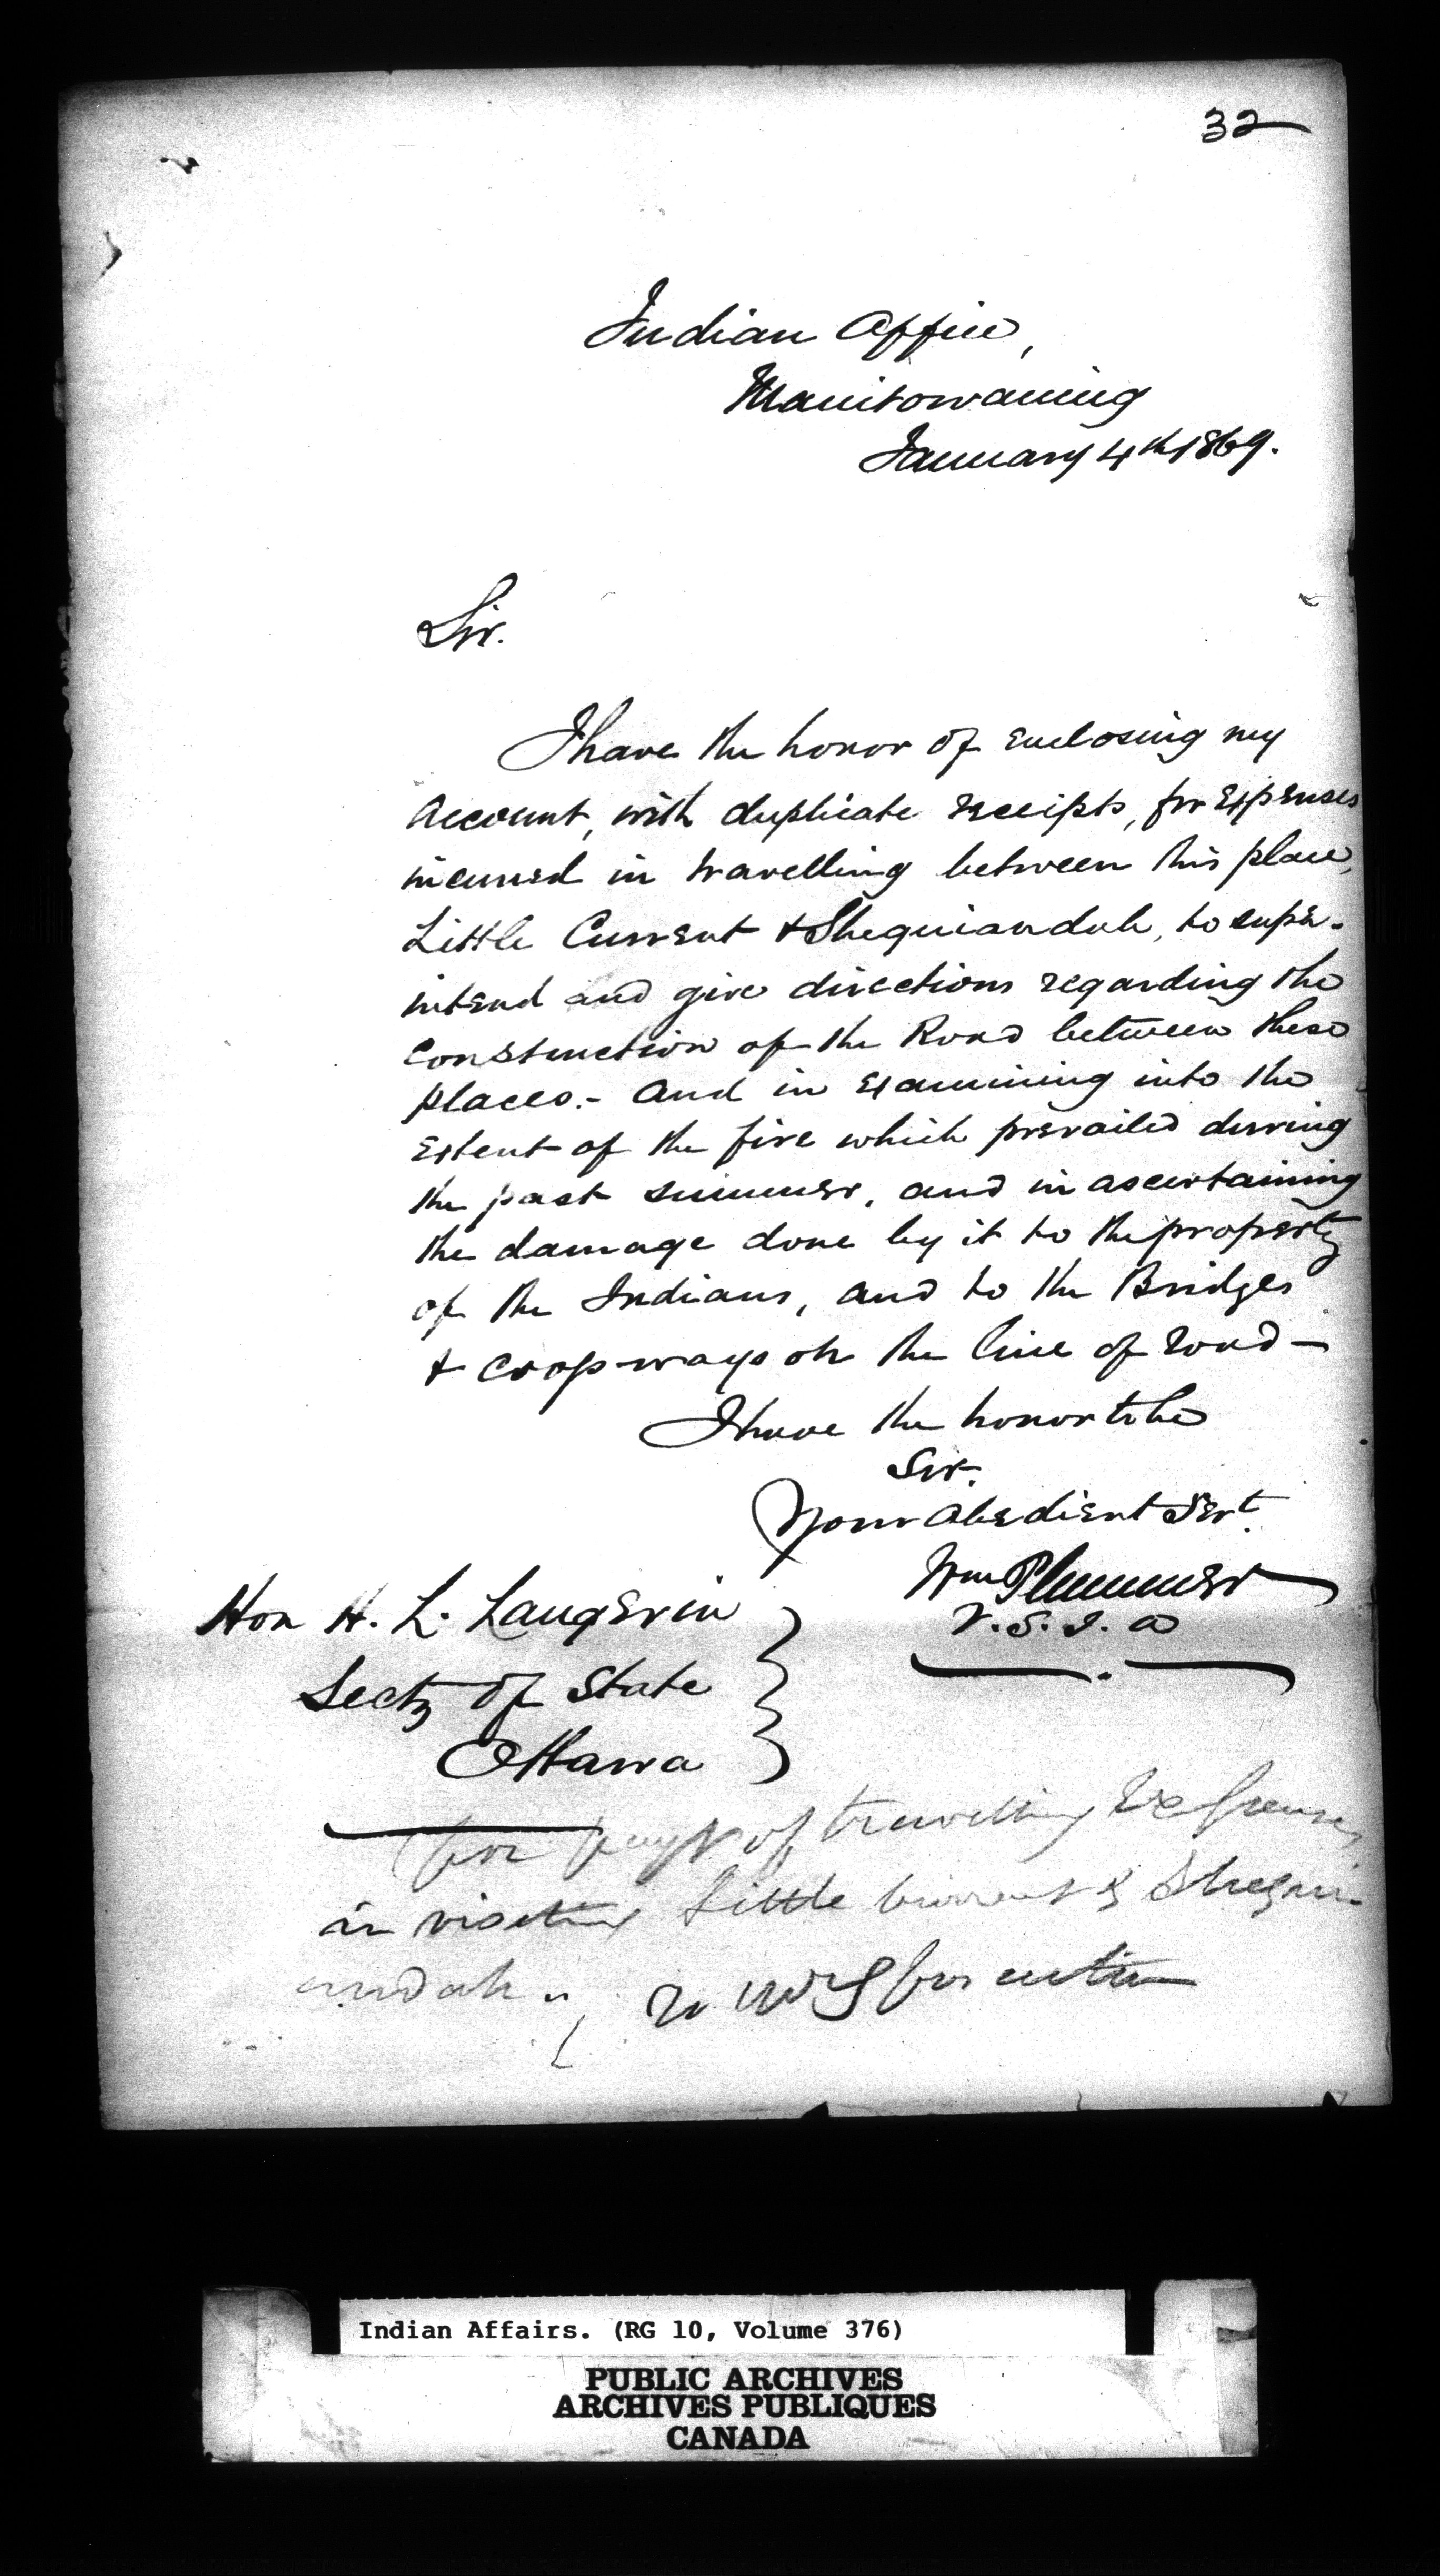 32
Indian Office,
Manitowaning
January 4th 1869.
Sir.
I have the honor of enclosing my
Account, with duplicate receipts, for expenses
incurred in travelling between this place,
Little Current & Sheguiandah, to super-
intend and give directions regarding the
construction of the Road between these
places.- And in examining into the
extent of the fire which prevailed during
the past summer, and in ascertaining
the damage done by it to the property
of the Indians, and to the Bridges
& cross-ways on the line of road -
I have the honor to be
Sir.
Your obedient Servt.
Wm Plummer
V. S. I. A
Hon H. L. Langevin
Secty of State
Ottawa
for payt of travelling Expenses
in visiting Little Current & Shegui-
andah
Indian Affairs. (RG 10, Volume 376)
PUBLIC ARCHIVES
ARCHIVES PUBLIQUES
CANADA